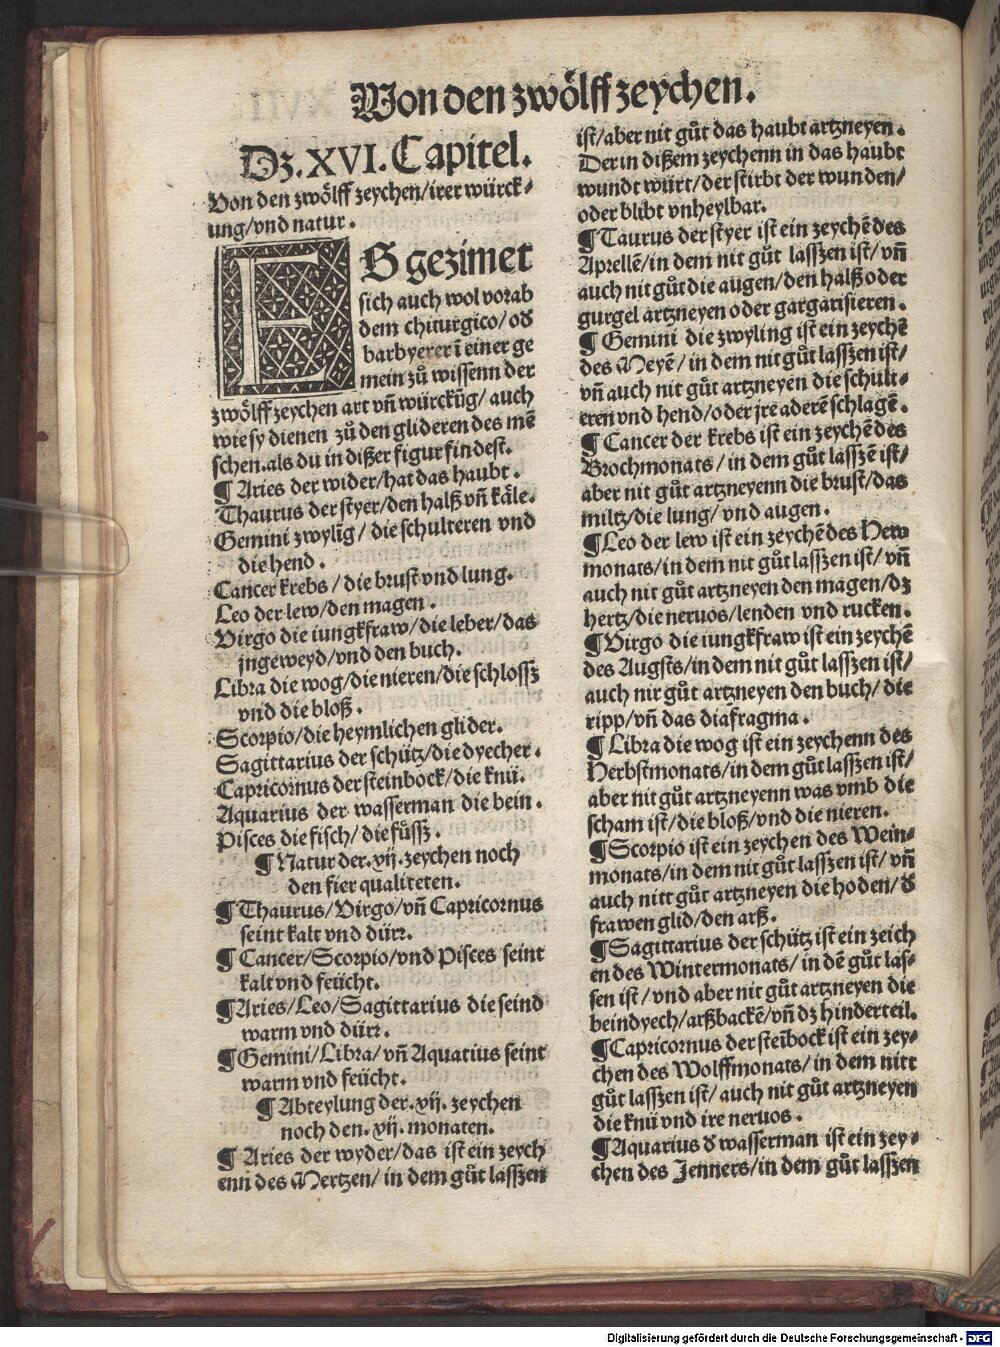 Von den zwölff zeychen.
Dz. XVI. Capitel.
Von den zwölff zeychen/irer würck⸗
ung/vnd natur.
ES gezimet
sich auch wol vorab
dem chirurgico/oď
barbyerer ī einer ge
mein zů wissenn der
zwölff zeychen art vñ würckūg/ auch
wie sy dienen zů den glideren des mē
schen. als du in dißer figur findest.
¶ Aries der wider/hat das haubt.
Thaurus der styer/den halß vñ käle.
Gemini zwylīg/ die schulteren vnd
die hend.
Cancer krebs/ die brust vnd lung.
Leo der lew/den magen.
Virgo die iungkfraw/die leber/das
jngeweyd/vnd den buch.
Libra die wog/die nieren/die schlossz
vnd die bloß.
Scorpio/die heymlichen glider.
Sagittarius der schütz/die dyecher.
Capricornus der steinbock/die knü.
Aquarius der wasserman die bein.
Pisces die fisch/ die füssz.
¶ Natur der .xij. zeychen noch
den fier qualiteten.
¶ Thaurus/Virgo/vñ Capricornus
seint kalt vnd dürꝛ.
¶ Cancer/Scorpio/vnd Pisces seint
kalt vnd feücht.
¶ Aries/Leo/Sagittarius die seind
warm vnd dürꝛ.
¶ Gemini/Libra/vñ Aquarius seint
warm vnd feücht.
¶ Abteylung der .xij. zeychen
noch den .xij. monaten.
¶ Aries der wyder/das ist ein zeych
enn des Mertzen/ in dem gůt lasszen
ist/aber nit gůt das haubt artzneyen.
Der in dißem zeychenn in das haubt
wundt würt/der stirbt der wunden/
oder blibt vnheylbar.
¶ Taurus der styer ist ein zeychē des
Aprellē/in dem nit gůt lasszen ist/ vñ
auch nit gůt die augen/den halß oder
gurgel artzneyen oder gargarisieren.
¶ Gemini die zwyling ist ein zeychē
des Meyē/ in dem nit gůt lasszen ist/
vñ auch nit gůt artzneyen die schult⸗
eren vnd hend/oder jre aderē schlagē.
¶ Cancer der krebs ist ein zeychē des
Brochmonats/ in dem gůt lasszē ist/
aber nit gůt artzneyenn die brust/das
miltz/die lung/ vnd augen.
¶ Leo der lew ist ein zeychē des Hew
monats/in dem nit gůt lasszen ist/ vñ
auch nit gůt artzneyen den magen/dz
hertz/die neruos/lenden vnd rucken.
¶ Virgo die iungkfraw ist ein zeychē
des Augsts/in dem nit gůt lasszen ist/
auch nit gůt artzneyen den buch/ die
ripp/vñ das diafragma.
¶ Libra die wog ist ein zeychenn des
Herbstmonats/in dem gůt lasszen ist/
aber nit gůt artzneyenn was vmb die
scham ist/die bloß/vnd die nieren.
¶ Scorpio ist ein zeychen des Wein⸗
monats/in dem nit gůt lasszen ist/ vñ
auch nitt gůt artzneyen die hoden/ď
frawen glid/den arß.
¶ Sagittarius der schütz ist ein zeich
en des Wintermonats/ in dē gůt las⸗
sen ist/ vnd aber nit gůt artzneyen die
beindyech/arßbackē/vñ dz hinderteil.
¶ Capricornus der steībock ist ein zey⸗
chen des Wolffmonats/ in dem nitt
gůt lasszen ist/ auch nit gůt artzneyen
die knü vnd ire neruos.
¶ Aquarius ď wasserman ist ein zey⸗
chen des Jenners/in dem gůt lasszen
Digitalisierung gefördert durch die Deutsche Forschungsgemeinschaft - DFG